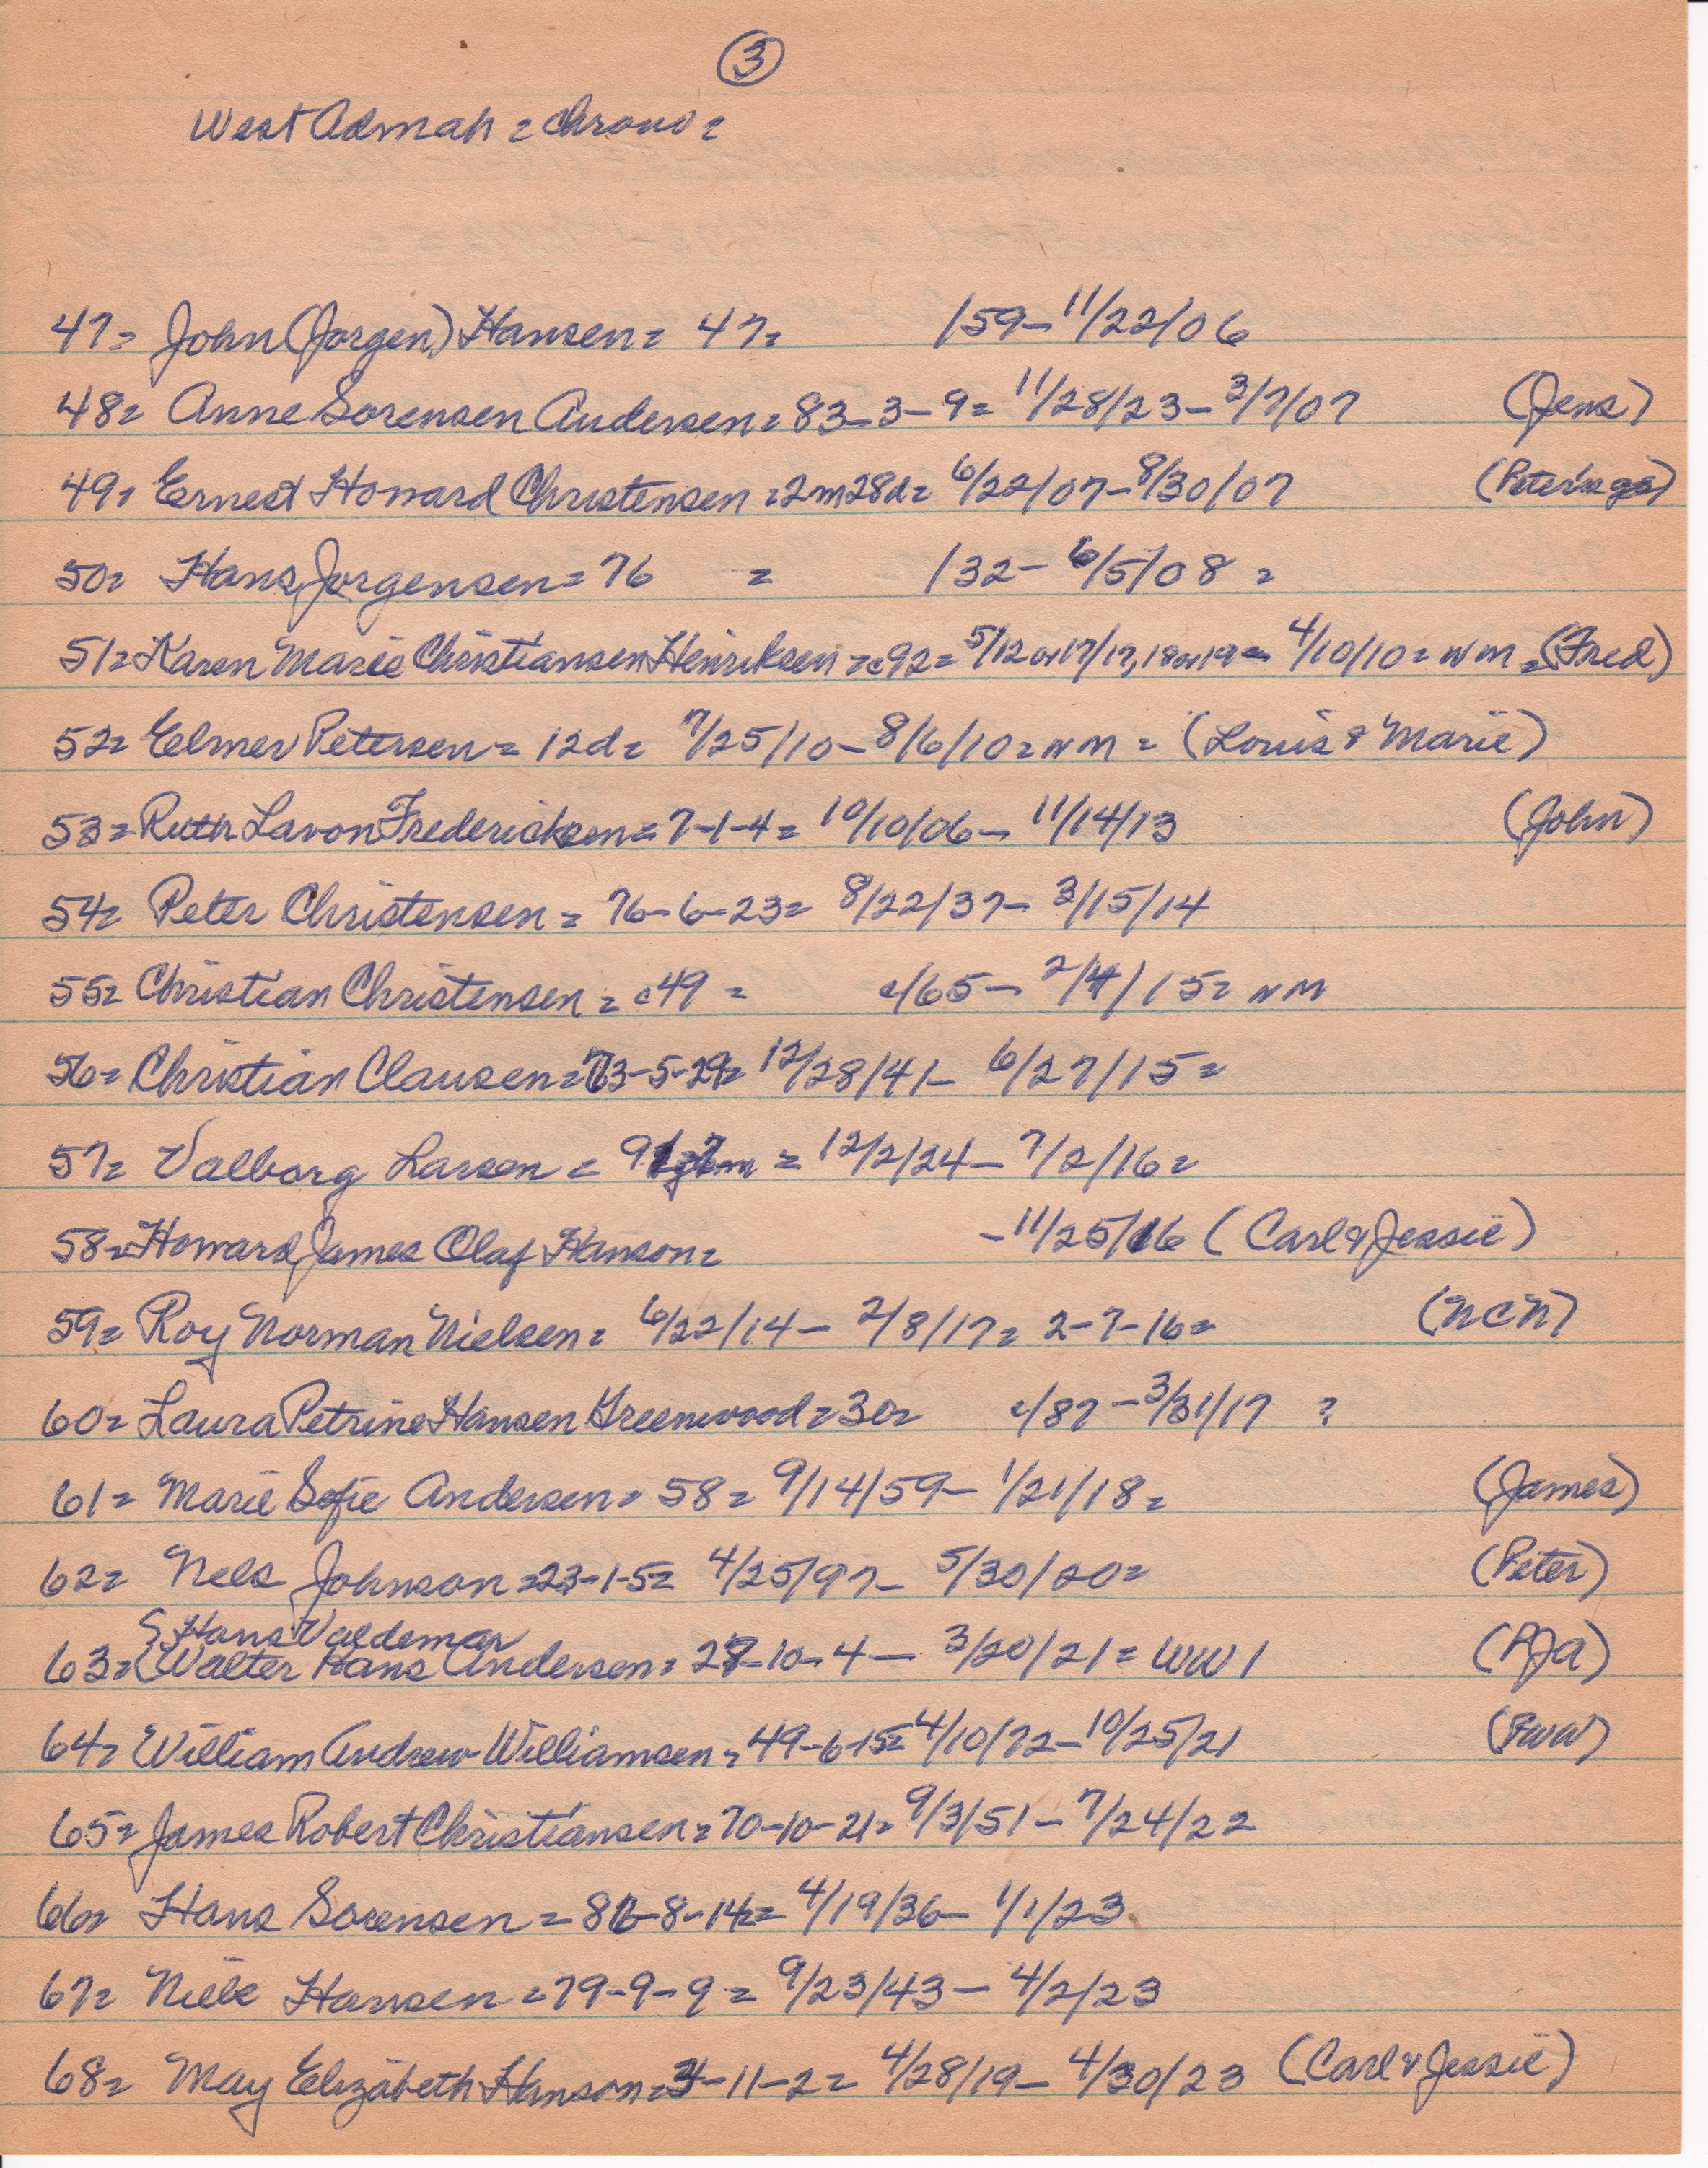 3
West Admah = Chrono =
47= John (Jorgen) Hansen = 47= /59 - 11/22/06
48= Anne Sorensen Andersen = 83-3-9= 11/28/23 - 3/7/07 (Jens)
49= Ernest Howard Christensen = 2m28d= 6/22/07 - 8/30/07 (Peter's gs)
50= Hans Jorgensen = 76 = /32 - 6/5/08 =
51= Karen Marie Christiansen Henriksen = c92= 5/12 or 17/17, 18 or 19 = 4/10/10 = NM = (Fred)
52= Elmer Petersen = 12d= 7/25/10 - 8/6/10 = NM = (Louis & Marie)
53= Ruth Lavon Fredericksen = 7-1-4= 10/10/06 - 11/14/13 (John)
54= Peter Christensen = 76-6-23= 8/22/37 - 3/15/14
55= Christian Christensen = c49 = c/65 - 2/4/15= NM
56= Christian Clausen = 73-5-29= 12/28/41 - 6/27/15 =
57= Valborg Larsen = 91 = 12/2/24 - 7/2/16 =
58= Howard James Olaf Hanson = - 11/25/16 (Carl & Jessie)
59= Roy Norman Nielsen = 6/22/14 - 2/8/17= 2-7-16= (NCN)
60= Laura Petrine Hansen Greenwood = 30= c/87 - 3/31/17 ?
61= Marie Sofie Andersen = 58= 9/14/59 - 1/21/18= (James)
62= Nels Johnson = 23-1-5= 4/25/97 - 5/30/20= (Peter)
{Hans Valdemar
63= {Walter Hans Andersen = 28-10-4 - 3/20/21 = WW1 (RJA)
64= William Andrew Williamsen = 49-6-15= 4/10/72 - 10/25/21 (FWW)
65= James Robert Christiansen = 70-10-21= 9/3/51 - 7/24/22
66= Hans Sorensen = 86-8-14= 4/19/36 - 1/1/23
67= Niels Hansen = 79-9-9= 9/23/43 - 4/2/23
68= May Elizabeth Hanson = 3-11-2= 4/28/19 - 4/30/23 (Carl & Jessie)